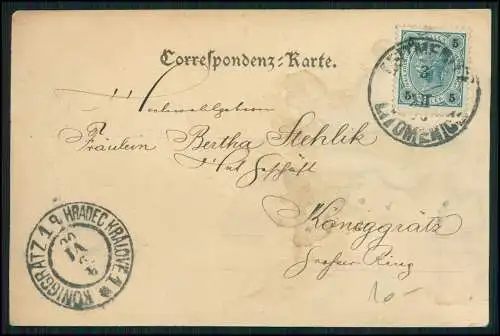 Correspondenz-Karte.
5 5
LITOMĚŘICE
Hochwohlgeboren
Fräulein Bertha Stehlik
Hut Geschäft
Königgrätz
Grosser Ring
10-
KÖNIGGRÄTZ 1 * HRADEC KRÁLOVÉ 1
VI